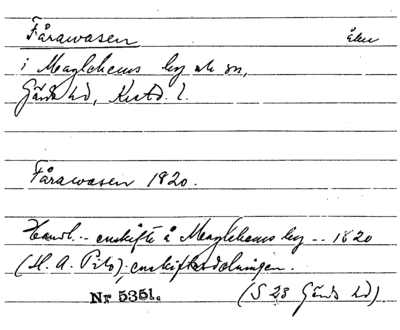 Fårawasen åker
i Maglehems by ok sn,
Gärds hd, Krstd. l.
Fårawasen 1820.
Handl. - enskifte å Maglehems by -- 1820
(M. A. Pilo), enskiftesdelningen.
Nr 5351. (S 23 Gärds hd)